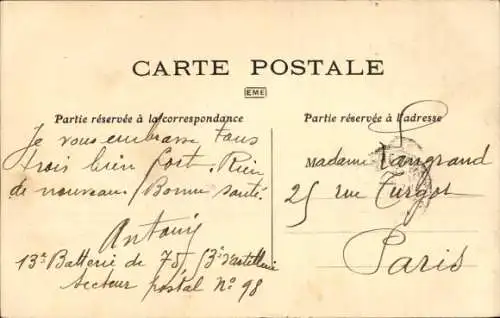 CARTE POSTALE
EME
Partie réservée à la correspondance
Je vous embrasse tous
trois bien fort. Rien
de nouveau. Bonne santé.
13e Batterie de 75
secteur postal No 98
Partie réservée à l'adresse
Madame Langrand
25 rue Turgot
Paris